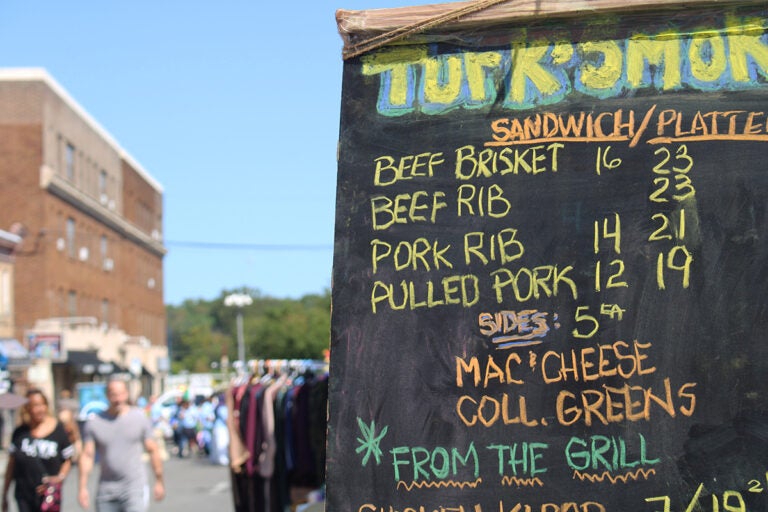 TURK'S SMOK
SANDWICH/PLATTE
BEEF BRISKET 16 23
BEEF RIB 23
PORK RIB 14 21
PULLED PORK 12 19
SIDES: 5 EA
MAC & CHEESE
COLL. GREENS
* FROM THE GRILL
LOVE